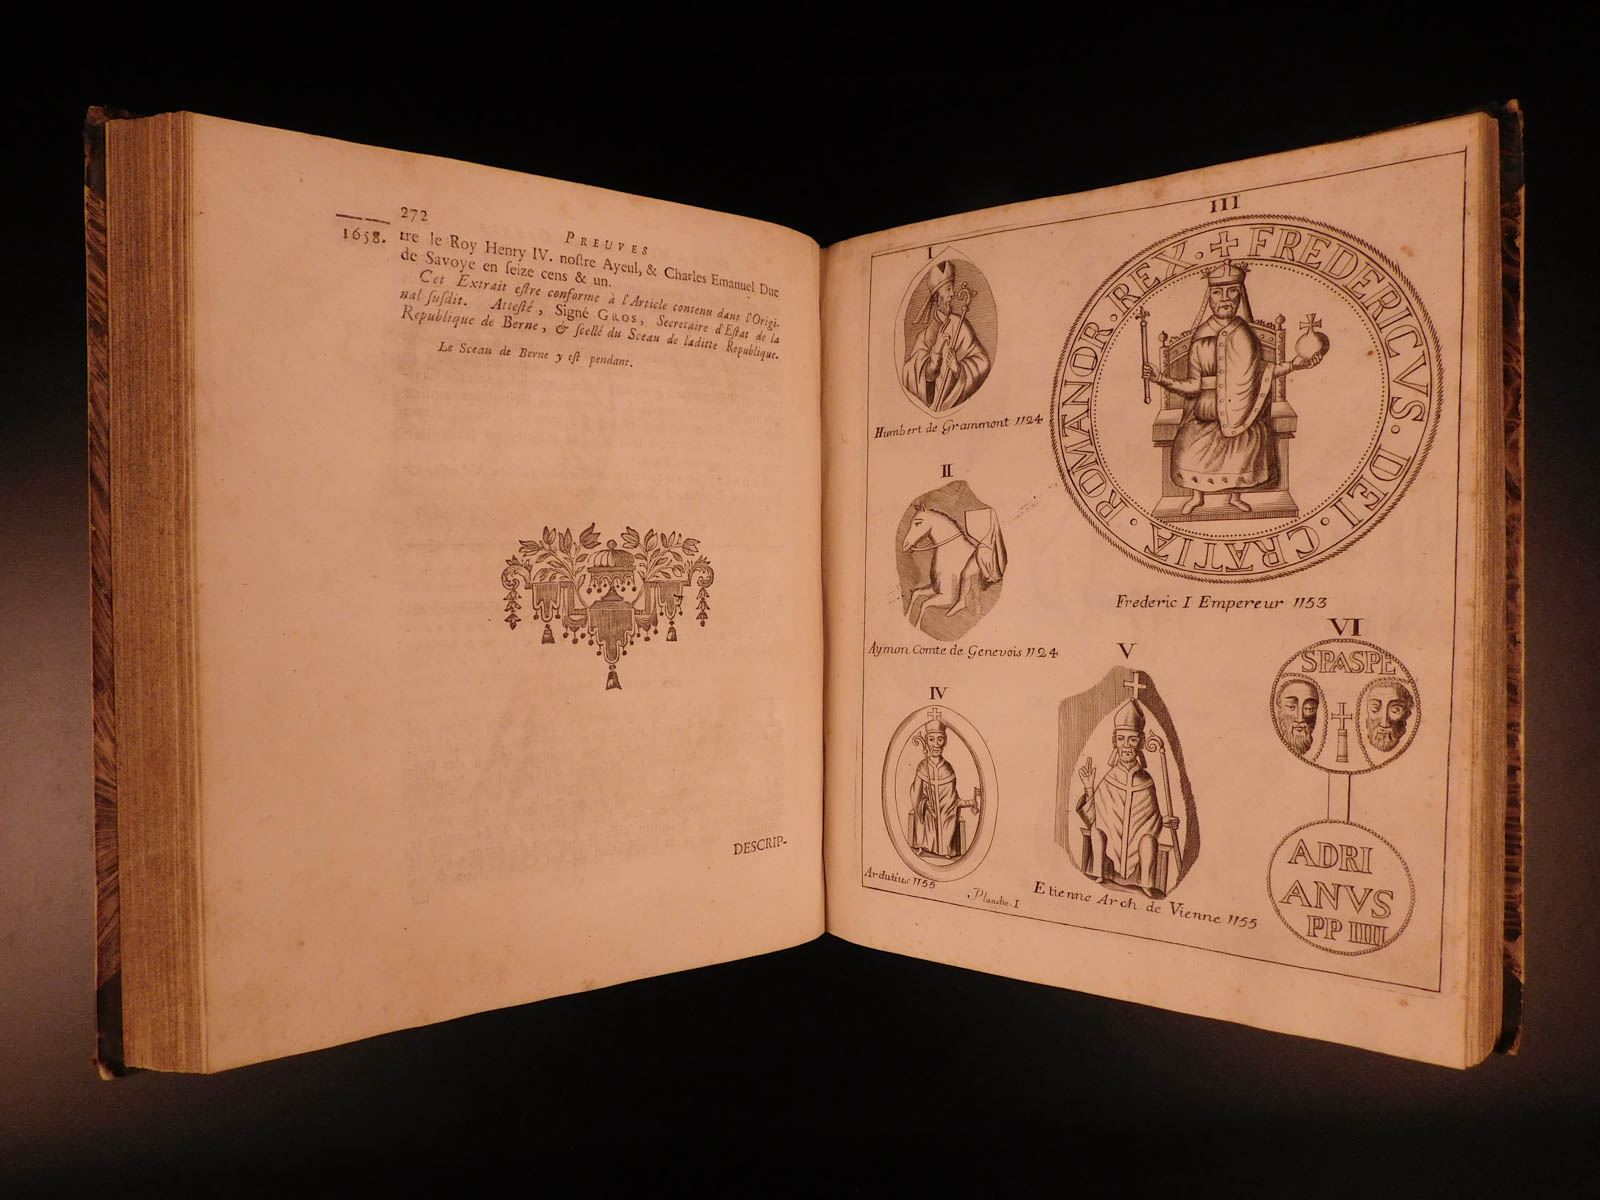 272
PREUVES
1658. tre le Roy Henry IV. noſtre Ayeul, & Charles Emanuel Duc
de Savoye en ſeize cens & un.
Cet Extrait eſtre conforme à l'Article contenu dans l'Origi-
nal ſuſdit. Atteſté, Signé GROS, Secretaire d'Eſtat de la
Republique de Berne, & ſcellé du Sceau de laditte Republique.
Le Sceau de Berne y eſt pendant.
DESCRIP-
I
Humbert de Grammont 1124
II
Aymon Comte de Genevois 1124
III
✠ FREDERICVS · DEI · GRATIA · ROMANOR · REX ·
Frederic I Empereur 1153
IV
Ardutius 1155
Planche. I
V
Etienne Arch de Vienne 1155
VI
SPASPE
ADRI
ANVS
PP IIII